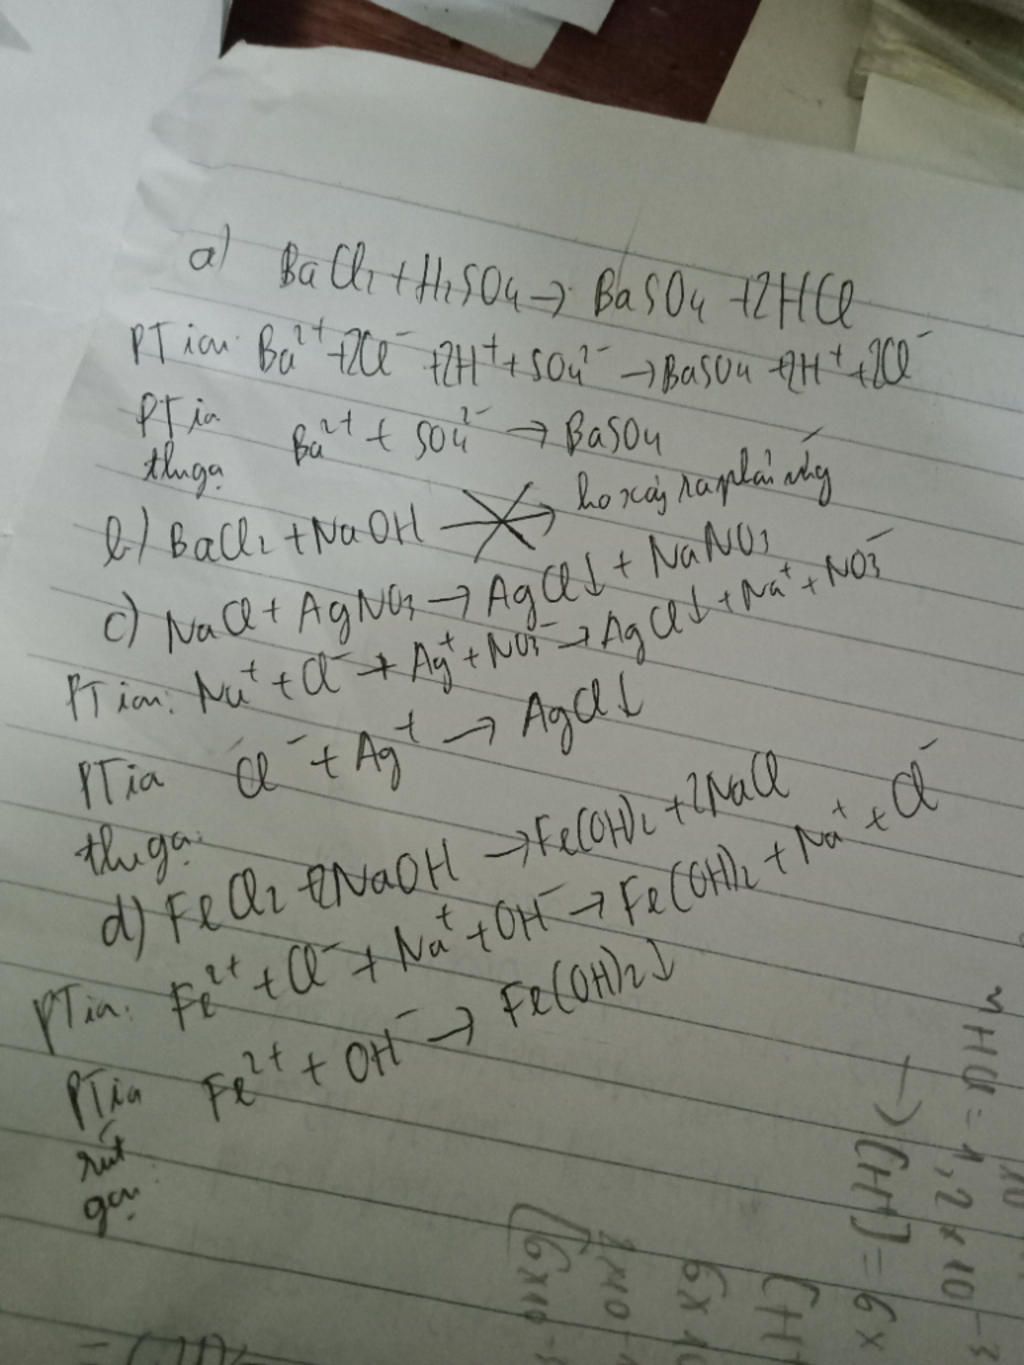 a) BaCl₂ + H₂SO₄ → BaSO₄ + 2HCl
PT ion: Ba²⁺ + 2Cl⁻ + 2H⁺ + SO₄²⁻ → BaSO₄ + 2H⁺ + 2Cl⁻
PT io
thu gọ Ba²⁺ + SO₄²⁻ → BaSO₄
b) BaCl₂ + NaOH ko xảy ra phản ứng
c) NaCl + AgNO₃ → AgCl↓ + NaNO₃
PT ion: Na⁺ + Cl⁻ + Ag⁺ + NO₃⁻ → AgCl↓ + Na⁺ + NO₃⁻
PT io Cl⁻ + Ag⁺ → AgCl↓
thu gọ
d) FeCl₂ + 2NaOH → Fe(OH)₂ + 2NaCl
PT io: Fe²⁺ + Cl⁻ + Na⁺ + OH⁻ → Fe(OH)₂ + Na⁺ + Cl⁻
PT io Fe²⁺ + OH⁻ → Fe(OH)₂↓
rút
gọn
= 1,2 x 10⁻³
→ [H⁺] = 6x
6x10